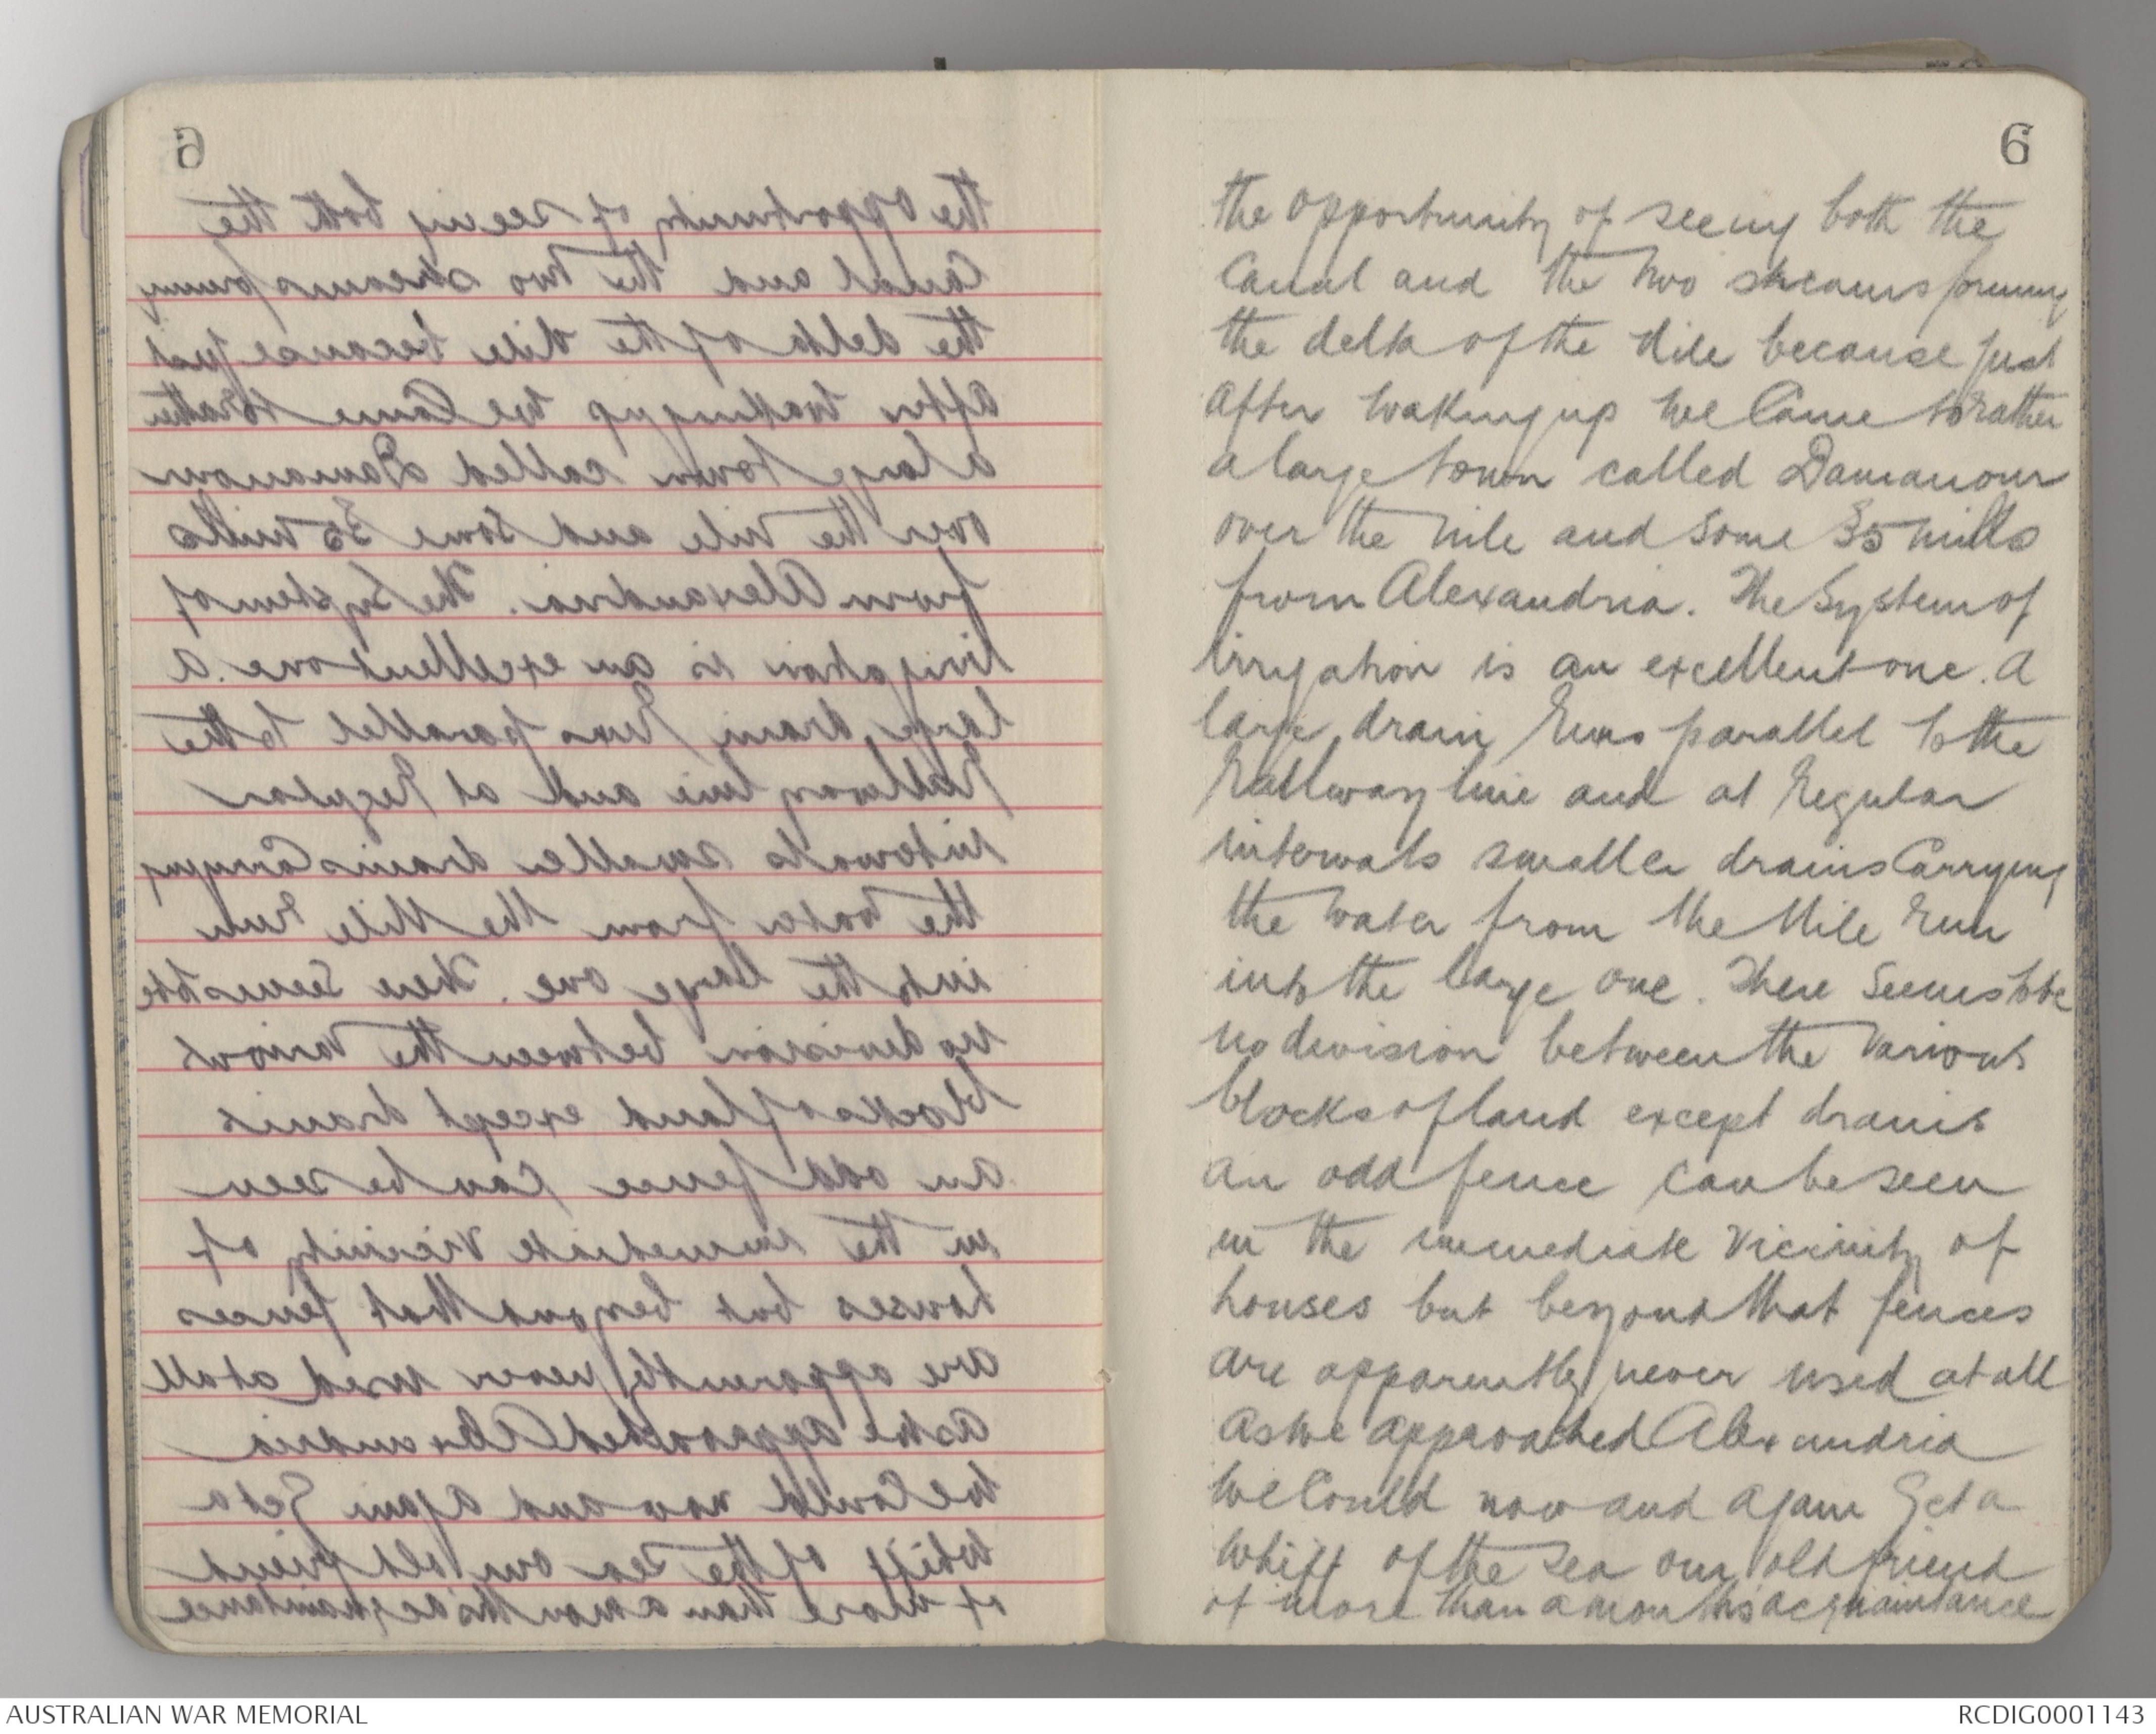 6
the opportunity of seeing both the
Canal and the two streams forming
the delta of the Nile because just
after waking up we Came to rather
a large town called Damanour
over the nile and some 35 miles
from Alexandria. The System of
irrigation is an excellent one. A
large drain runs parallel to the
Railway line and at Regular
intervals smaller drains Carrying
the water from the Nile run
into the large one. There Seems to be
no devision between the various
blocks of land except drains
an odd fence can be seen
in the immediate vicinity of
houses but beyond that fences
are apparently never used at all
As we approached Alexandria
we Could now and again Get a
whiff of the sea our old friend
of more than a month's acquaintance
AUSTRALIAN WAR MEMORIAL
RCDIG0001143